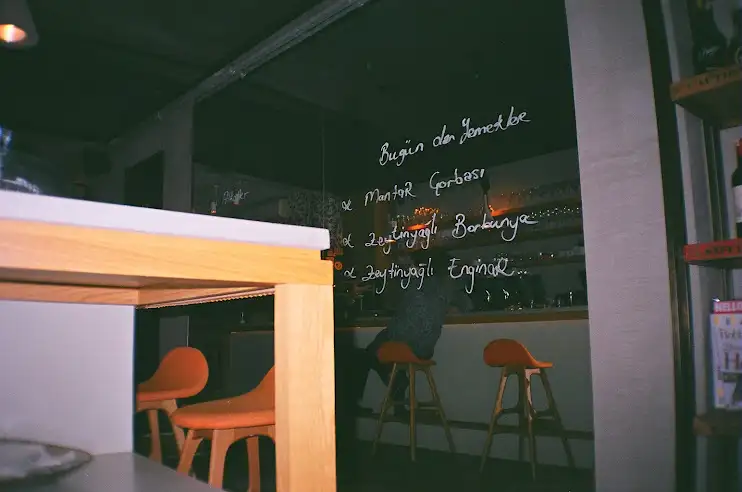 Bugün de Yemekte
Mantar Çorbası
Zeytinyağlı Barbunya
Zeytinyağlı Enginar...
HELLO